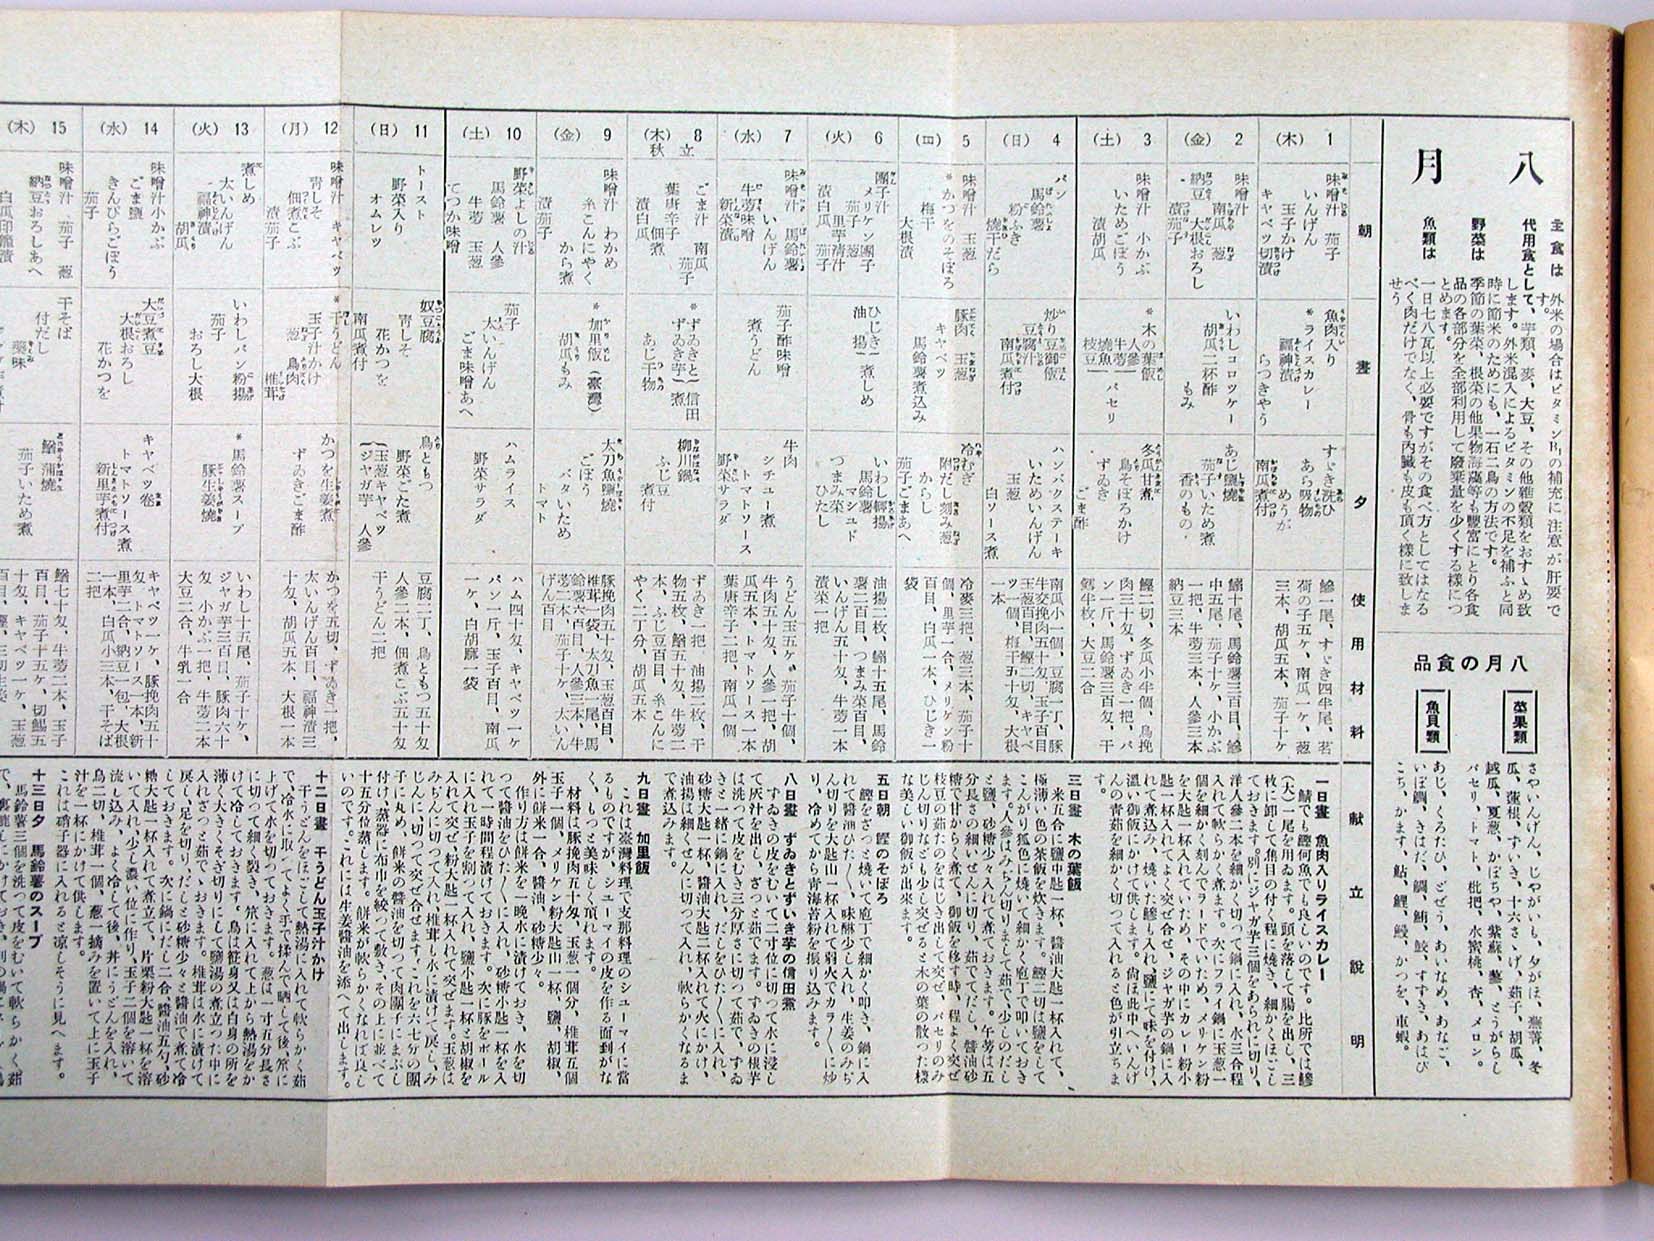 八月
主食は 外米の場合はビタミンB₁の補充に注意が肝要です。
代用食として、芋類、麥、大豆、その他雑穀類をおすゝめ致
します。外米混入によるビタミンの不足を補ふと同
時に節米のためにも、一石二鳥の方法です。
野菜は 季節の葉菜、根菜の他果物海藻等も豊富にとり各食
品の各部分を全部利用して廢棄量を少くする様につ
とめます。
魚類は 一日七八瓦以上必要ですがその食べ方としてはなる
べく肉だけでなく、骨も内臓も皮も頂く様に致しま
せう
八月の食品
菜果類
さやいんげん、じゃがいも、夕がほ、
冬瓜、蓮根、ずいき、十六さゝげ、茄子、胡瓜、
越瓜、夏葱、かぼちや、紫蘇、蓼、とうがらし
パセリ、トマト、枇把、水蜜桃、杏、メロン。
魚貝類
あじ、くろたひ、どぜう、あいなめ、あなご、
いぼ鯛、きはだ、鯛、鮪、鮫、すすき、あはび
こち、かます、鮎、鯉、鰻、かつを、車蝦。
朝
晝
夕
使用材料
献立説明
1 (木)
味噌汁 茄子
いんげん
玉子かけ
キヤベツ切漬
魚肉入り
*ライスカレー
福神漬
らつきやう
すゞき洗ひ
あら吸物
めうが
南瓜煮付
鯵一尾、すゞき四半尾、茗
荷の子五ケ、南瓜一ケ、葱
三本、胡瓜五本、茄子十ケ
2 (金)
味噌汁
南瓜 葱
納豆 大根おろし
漬茄子
いわしコロツケー
胡瓜二杯酢
もみ
あじ鹽燒
茄子いため煮
香のもの
鰯十尾、馬鈴薯三百目、鯵
中五尾、茄子十ケ、小かぶ
一把、牛蒡一本、人參三本
納豆三本
3 (土)
味噌汁 小かぶ
いためごぼう
漬胡瓜
*木の葉飯
人參
牛蒡
燒魚
枝豆
パセリ
冬瓜甘煮
鳥そぼろかけ
ずゐき
ごま酢
鰹二切、冬瓜小半個、鳥挽
肉三十匁、ずゐき一把、パ
ン一斤、馬鈴薯三百匁、干
鱈半枚、大豆二合
4 (日)
パン
馬鈴薯
粉ふき
燒干だら
炒り豆御飯
豆腐汁
南瓜煮付
ハンバウステーキ
いためいんげん
玉葱
白ソース煮
南瓜小一個、豆腐一丁、豚
牛交挽肉五十匁、玉子百目
玉葱六百目、鰹二切、キヤベ
ツ一個、梅干五十匁、大根
一本
5 (四)
味噌汁 玉葱
*かつをのそぼろ
梅干
大根漬
豚肉 玉葱
キヤベツ
馬鈴薯煮込み
冷むぎ
附だし刻み葱
からし
茄子ごまあへ
冷麥三把、葱三本、茄子十
個、里芋一合、メリケン粉
百目、白瓜一本、ひじき一
袋
6 (火)
團子汁
メリケン團子
茄子 葱
里芋清汁
漬白瓜 茄子
ひじき
油揚
煮しめ
いわし鐸揚
馬鈴薯
マシユド
つまみ菜
ひたし
油揚二枚、鰯十五尾、馬鈴
薯二百目、つまみ菜百目、
いんげん五十匁、牛蒡一本
漬菜一把
7 (水)
味噌汁 馬鈴薯
いんげん
牛蒡味噌
新菜漬
茄子酢味噌
煮うどん
牛肉
シチユー煮
トマトソース
野菜サラダ
うどん玉五ケ、茄子十個、
牛肉五十匁、人參一把、胡
瓜五本、トマトソース一本
葉唐辛子二把、南瓜一個
8 (木) 立秋
ごま汁 南瓜
茄子
葉唐辛子
佃煮
漬白瓜
*ずゐきと
ずゐき芋
信田
煮
あじ干物
柳川鍋
ふじ豆
煮付
ずゐき一把、油揚二枚、干
物五枚、鰯五十匁、牛蒡二
本、ふじ豆百目、糸こんに
やく二丁分、胡瓜五本
9 (金)
味噌汁 わかめ
糸こんにやく
から煮
漬茄子
*加里飯(臺灣)
胡瓜もみ
太刀魚鹽燒
ごぼう
バタいため
トマト
豚挽肉五十匁、玉葱百目、
椎茸一袋、太刀魚一尾、馬
鈴薯六百目、人參三本、牛
蒡二本、茄子十ケ、太いん
げん百目
10 (土)
野菜よしの汁
馬鈴薯 人參
牛蒡 玉葱
てつか味噌
茄子
太いんげん
ごま味噌あへ
ハムライス
野菜サラダ
ハム四十匁、キヤベツ一ケ
パン一斤、玉子百目、南瓜
一ケ、白胡麻一袋
11 (日)
トースト
野菜入り
オムレツ
奴豆腐
靑しそ
花かつを
南瓜煮付
鳥ともつ
野菜ごた煮
玉葱キヤベツ
ジヤガ芋 人參
豆腐二丁、鳥ともつ五十匁
人參二本、佃煮こぶ五十匁
干うどん二把
12 (月)
味噌汁 キヤベツ
靑しそ
佃煮こぶ
漬茄子
*干うどん
玉子汁かけ
葱 鳥肉
椎茸
かつを生姜煮
ずゐきごま酢
かつを五切、ずゐき一把、
太いんげん百目、福神漬三
十匁、胡瓜五本、大根一本
13 (火)
煮しめ
太いんげん
福神漬
胡瓜
いわしパン粉揚
茄子
おろし大根
*馬鈴薯スープ
豚生姜燒
いわし十五尾、茄子十ケ、
ジヤガ芋三百目、豚肉六十
匁、小かぶ一把、牛蒡二本
大豆二合、牛乳一合
14 (水)
味噌汁小かぶ
ごま鹽
きんぴらごぼう
茄子
大豆煮豆
大根おろし
花かつを
キヤベツ卷
トマトソース煮
新里芋煮付
キヤベツ一ケ、豚挽肉五十
匁、トマトソース一本、新
里芋二合、納豆一包、大根
一本、白瓜小三本、干そば
二把
15 (木)
味噌汁 茄子 葱
納豆おろしあへ
白瓜印籠漬
干そば
付だし
藥味
鰯蒲燒
茄子いため煮
鰯七十匁、牛蒡二本、玉子
百目、茄子十五ケ、切鯣五
十匁、キヤベツ一ケ、玉葱
一日晝 魚肉入りライスカレー
鯖でも鰹何魚でも良しいのです。比所では鯵
(大)一尾を用ゐます。頭を落して腸を出し、三
枚に卸して焦目の付く程に燒き、細かくほごし
ておきます。別にジヤガ芋三個をあられに切り、
洋人參二本を細かく切つて鍋に入れ、水三合程
入れて軟らかく煮ます。次にフライ鍋に玉葱一
個を細かく刻んでラードでいため、メリケン粉
大匙一杯入れていため、その中にカレー粉小
匙一杯入れてよく突ぜ合せ、ジヤガ芋の鍋に入
れて煮込み、燒いた鯵も入れ、鹽にて味を付け、
溫い御飯にかけて供します。尙ほ此中へいんげ
んの靑を細かく切つて入れると色が引立ちま
す。
三日晝 木の葉飯
米五合に鹽中匙一杯、醤油大匙一杯入れて、
極薄い色の茶飯を炊きます。鰹二切は鹽をして
こんがり狐色に燒いて細かく庖丁で叩いておき
ます。人參はみぢん切りまぜて茹で、少しのだし
と鹽、砂糖少々入れて煮ておきます。午蒡は五
分長さの細いせんに切り、茹でてだし、醤油砂
糖で甘からく煮て、御飯を移す時、程よく突ぜ
枝豆の茹たのをはじき出して突ぜ、パセリのみ
じん切りなども少し突ぜると木の葉の散つた樣
な美しい御飯が出來ます。
五日朝 鰹のそぼろ
鰹をざつと燒いて庖丁で細かく叩き、鍋に入
れて醤油ひた〱、味醂少し入れ、生姜のみぢ
ん切りを大匙山一杯入れて弱火でカラ〱に炒
り、冷めてから靑海苔粉を振り込みます。
八日晝 ずゐきとずいき芋の信田煮
ずゐきの皮をむいて二寸位に切つて水に浸し
て灰汁を出し、ざつと茹でます。ずゐきの根芋
は洗つて皮をむき三分厚さに切つて茹で、ずゐ
きと一緒に鍋に入れ、だしをひた〱に入れ、
砂糖大匙一杯、醤油大匙二杯入れて火にかけ、
油揚は細くせんに切つて入れ、軟らかくなるま
で煮込みます。
九日晝 加里飯
これは臺灣料理で支那料理のシユーマイに當
るものですが、シユーマイの皮を作る面到がな
く、もつと美味しく頂れます。
材料は豚挽肉五十匁、玉葱一個分、椎茸五個
玉子一個、メリケン粉大匙山一杯、鹽、胡椒、
外に餅米一合、醤油、砂糖少々。
作り方は餅米を一晩水に漬けておき、水を切
つて醤油をひた〱に入れ、砂糖小匙一杯を入
れて一時間程漬けておきます。次に豚をボール
に入れ玉子を割つて入れ、鹽小匙一杯と胡椒を
入れて突ぜ、粉大匙一杯入れて突ぜます。玉葱は
みぢんに切つて入れ椎茸も水に漬けて戾し、み
じんに切つて突ぜ合せます。これを六七分の團
子に丸め、餅米の醤油を切つて肉團子にまぶし
付け、蒸器に布巾を絞つて敷き、その上に並べて
十五分位蒸します。餅米が軟らかくなれば良し
いのです。これには生姜醤油を添へて出します。
十二日晝 干うどん玉子汁かけ
干うどんをほごして熱湯に入れて軟らかく茹
で、冷水に取つてよく手で揉んで晒して後、笊に
上げて水を切つておきます。葱は一寸五分長さ
に切つて細く裂き、笊に入れて上から熱湯をか
けて冷しておきます。鳥は笹身又は白身の所を
薄く大きくそぎ切りにして鹽湯の煮立つた中に
入れざつと茹でゝおきます。椎茸は水に漬けて
戾し、足を切り、だしと砂糖少々と醤油で煮て冷
しておきます。次に鍋にだし二合、醤油五勺、砂
糖大匙一杯入れて煮立て、片栗粉大匙一杯を溶
いて入れ、少し濃い位に作り、玉子二個を溶いて
流し込み、よく冷して後、丼にうどんを入れ、
鳥二切、椎茸一個、葱一摘みを置いて上に玉子
汁を一杯にかけて供します。
これは硝子器に入れると凉しそうに見へます。
十三日夕 馬鈴薯のスープ
馬鈴薯三個を洗つて皮をむいて軟らかく茹